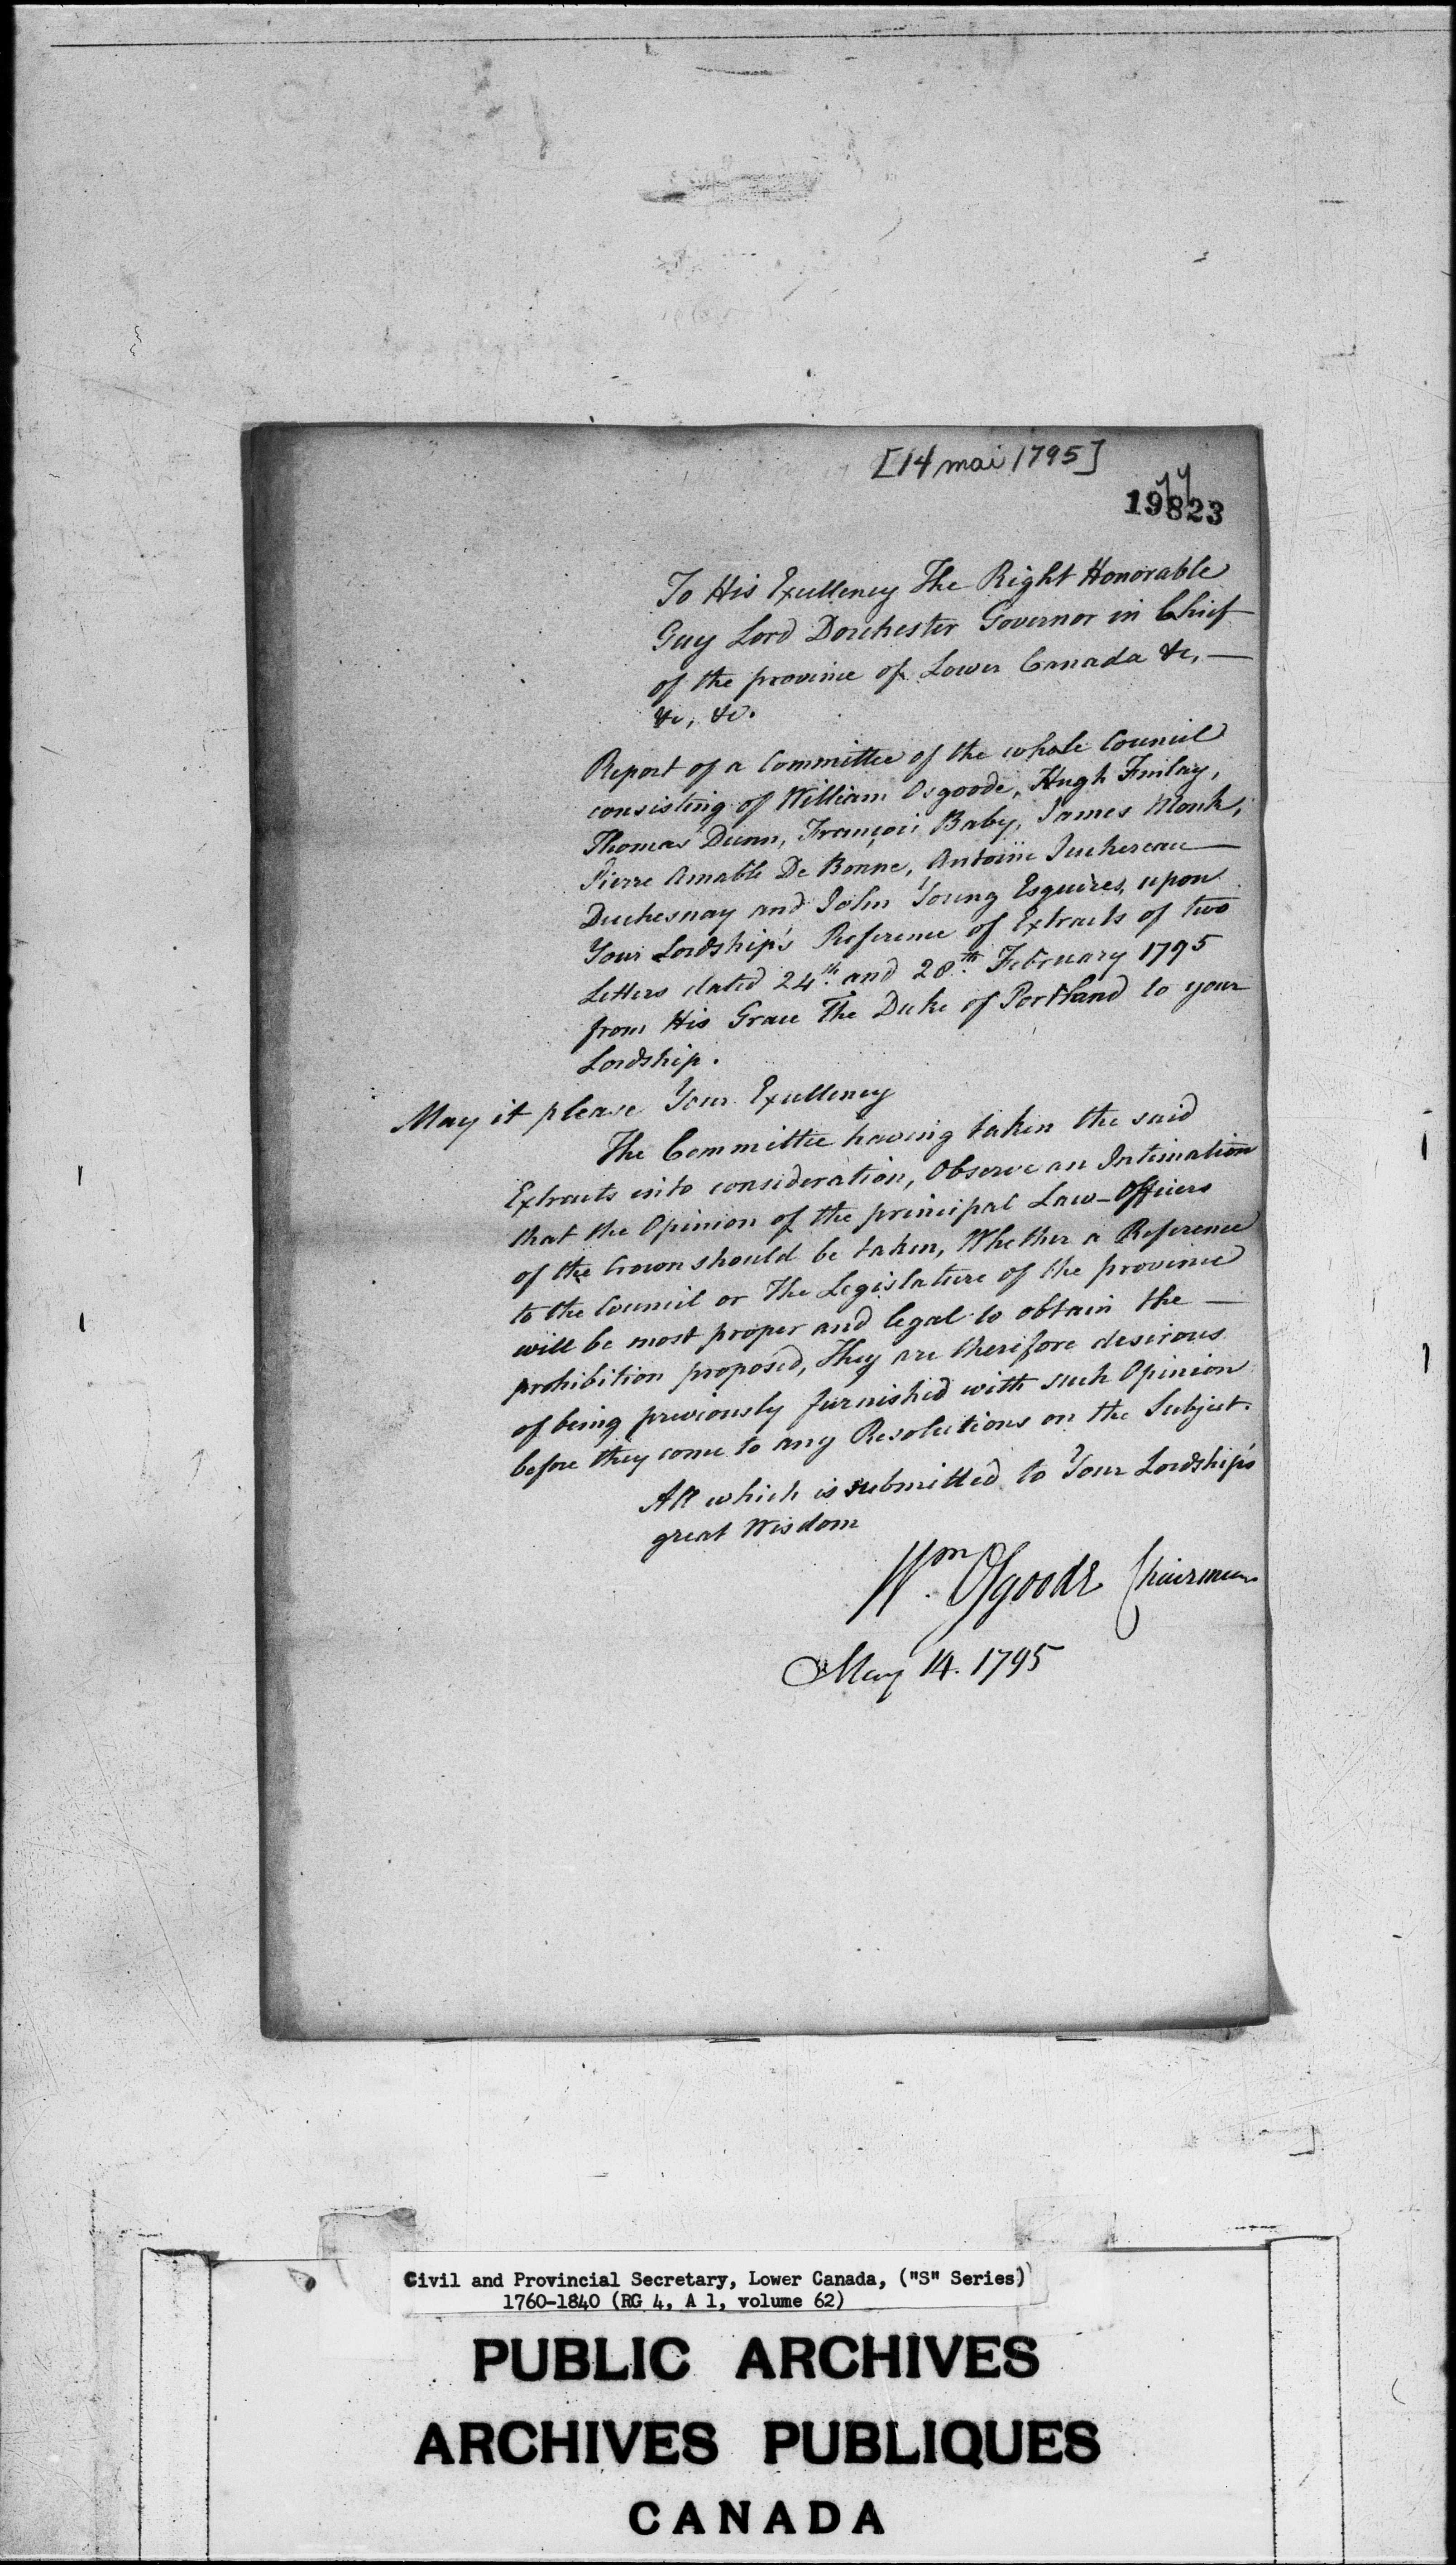 [14 mai 1795]
19823
To His Excellency The Right Honorable
Guy Lord Dorchester Governor in Chief
of the province of Lower Canada &c, —
&c, &c.
Report of a Committee of the whole Council
consisting of William Osgoode, Hugh Finlay,
Thomas Dunn, François Baby, James Monk,
Pierre Amable De Bonne, Antoine Juchereau —
Duchesnay and John Young Esquires, upon
Your Lordship's Reference of Extracts of two
Letters dated 24th. and 28th. February 1795
from His Grace The Duke of Portland to your
Lordship.
May it please Your Excellency
The Committee having taken the said
Extracts into consideration, Observe an Intimation
that the Opinion of the principal Law-Officers
of the Crown should be taken, Whether a Reference
to the Council or The Legislature of the province
will be most proper and legal to obtain the —
prohibition proposed, They are therefore desirous
of being previously furnished with such Opinion
before they come to any Resolutions on the Subject.
All which is submitted to Your Lordship's
great Wisdom
Wm. Osgoode Chairman
May 14. 1795
Civil and Provincial Secretary, Lower Canada, ("S" Series)
1760-1840 (RG 4, A 1, volume 62)
PUBLIC ARCHIVES
ARCHIVES PUBLIQUES
CANADA